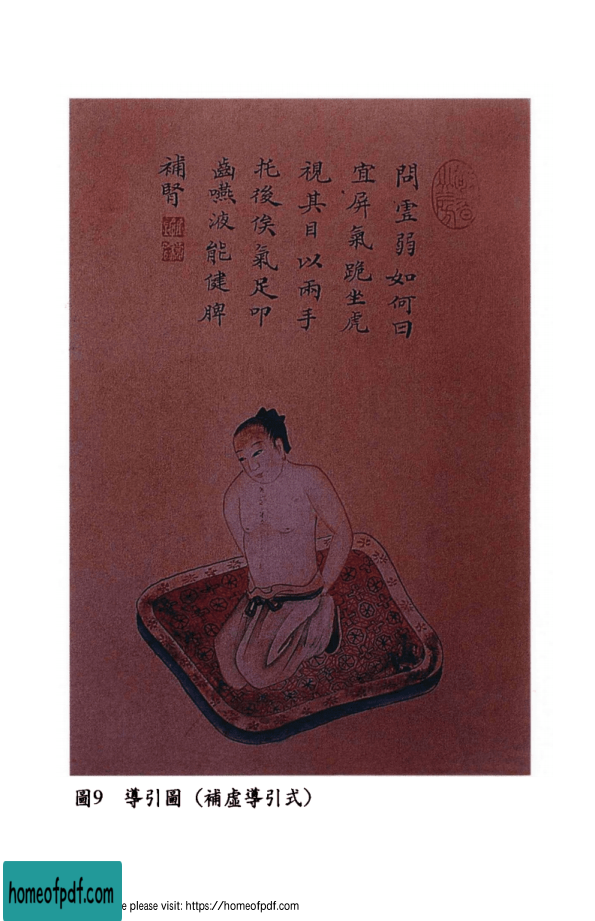 問虛弱如何曰
宜屏氣跪坐虎
視其目以兩手
托後俟氣足叩
齒嚥液能健脾
補腎
圖9 導引圖（補虛導引式）
homeofpdf.com
e please visit: https://homeofpdf.com